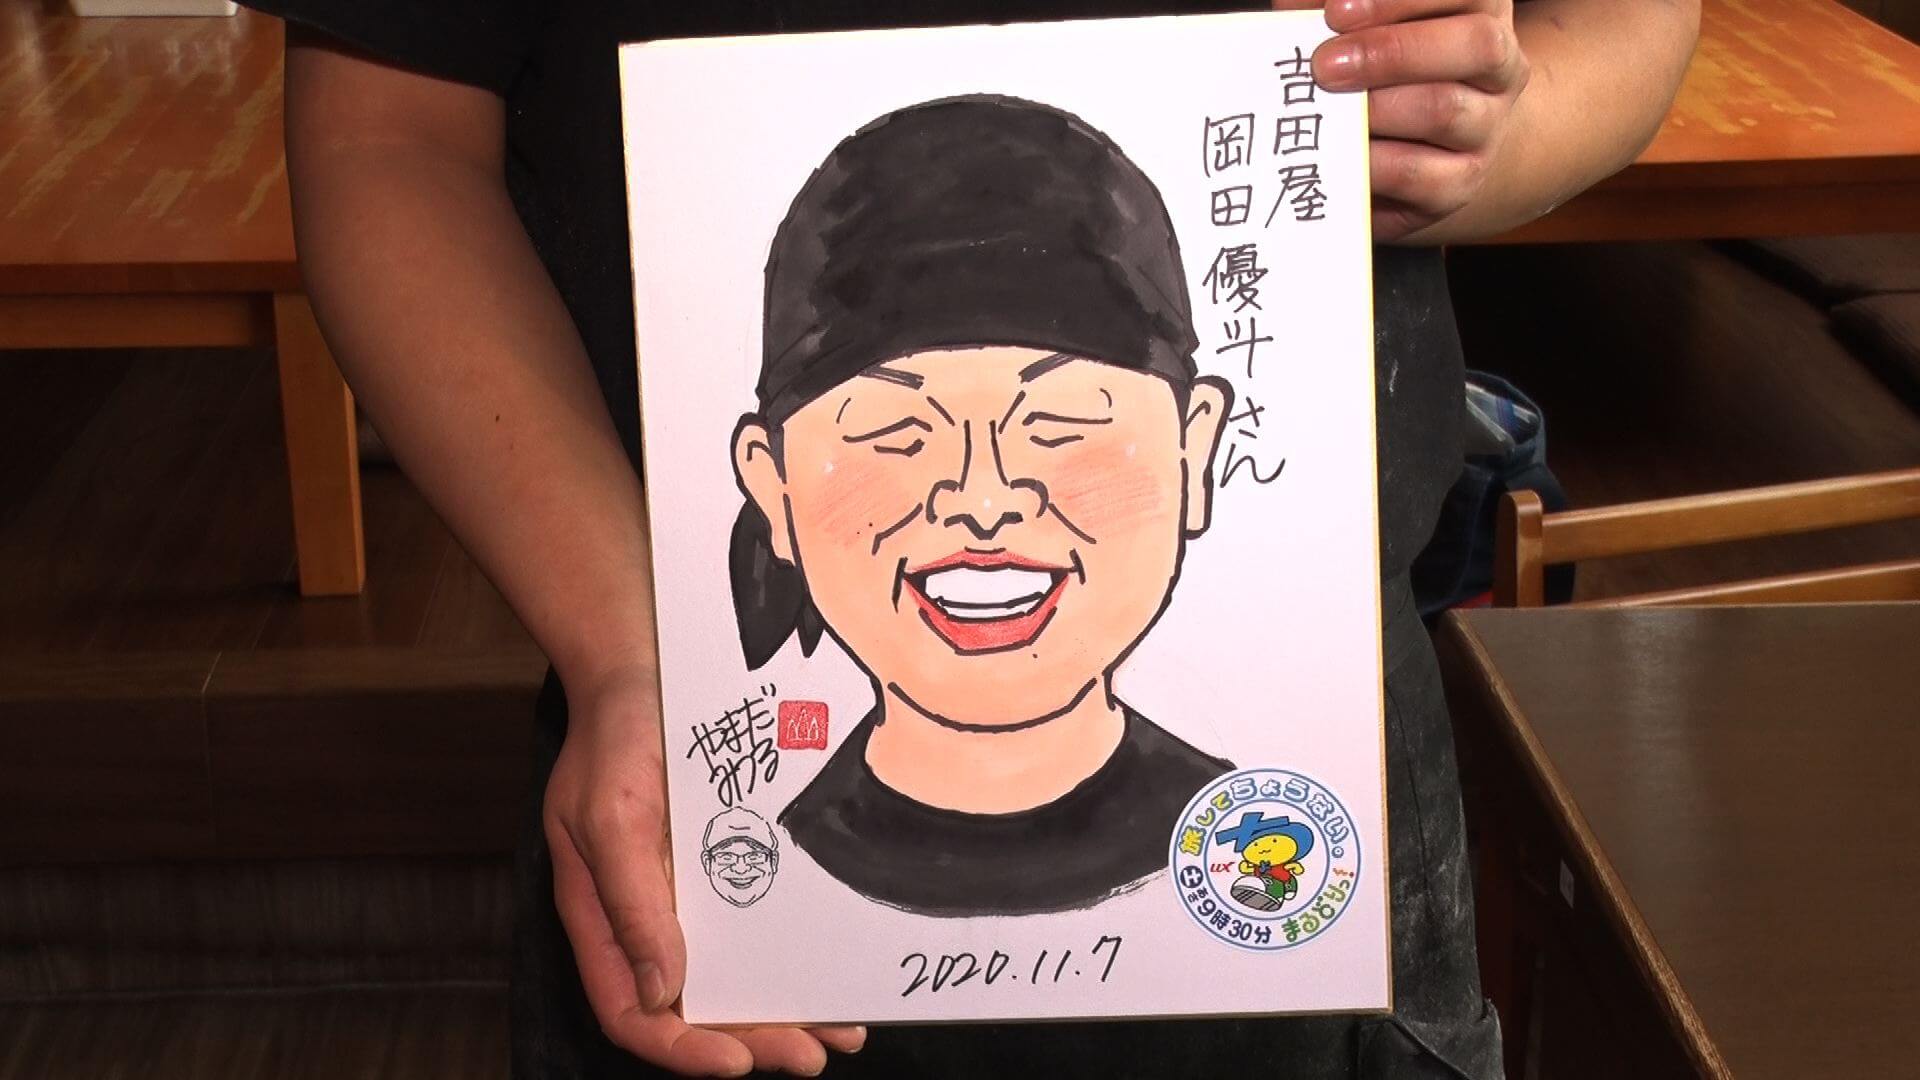 吉田屋
岡田優斗さん
やまだ
みつる
旅してちょうない。
UX
あさ9時30分
まるどりっ!
2020.11.7